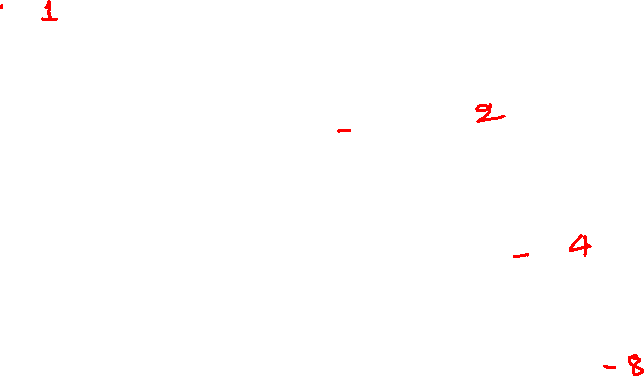 - 1
- 2
- 4
- 8